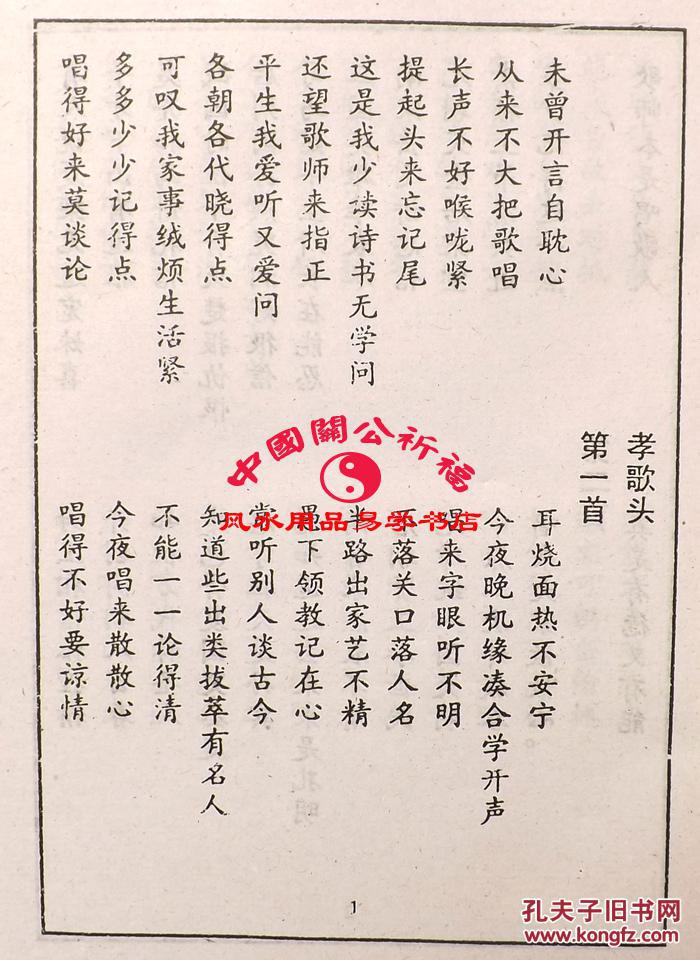 孝歌头
第一首
未曾开言自耽心
耳烧面热不安宁
从来不大把歌唱
今夜晚机缘凑合学开声
长声不好喉咙紧
唱来字眼听不明
提起头来忘记尾
不落关口落人名
这是我少读诗书无学问
半路出家艺不精
还望歌师来指正
愚下领教记在心
平生我爱听又爱问
常听别人谈古今
各朝各代晓得点
知道些出类拔萃有名人
可叹我家事绒烦生活紧
不能一一论得清
多多少少记得点
今夜唱来散散心
唱得好来莫谈论
唱得不好要谅情
中國關公祈福
风水用品易学书店
1
孔夫子旧书网
www.kongfz.com